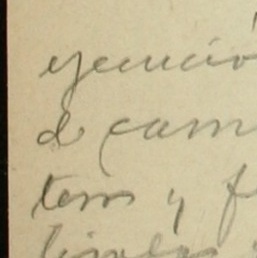 ejecució
de cam
tem y f